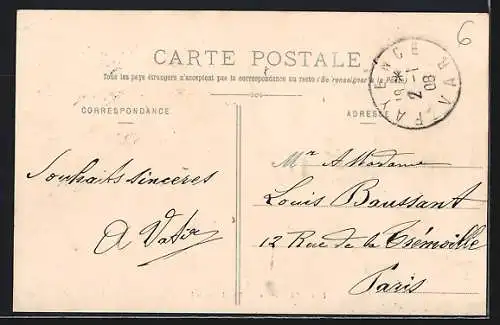 6
CARTE POSTALE
Tous les pays étrangers n'acceptent pas la correspondance au recto (Se renseigner à la Poste)
CORRESPONDANCE
ADRESSE
FAYENCE VAR
18 * 2 - 1 08
Souhaits sincères
A Vatin
Mr & Madame
Louis Baussant
12 Rue de la Trémoille
Paris